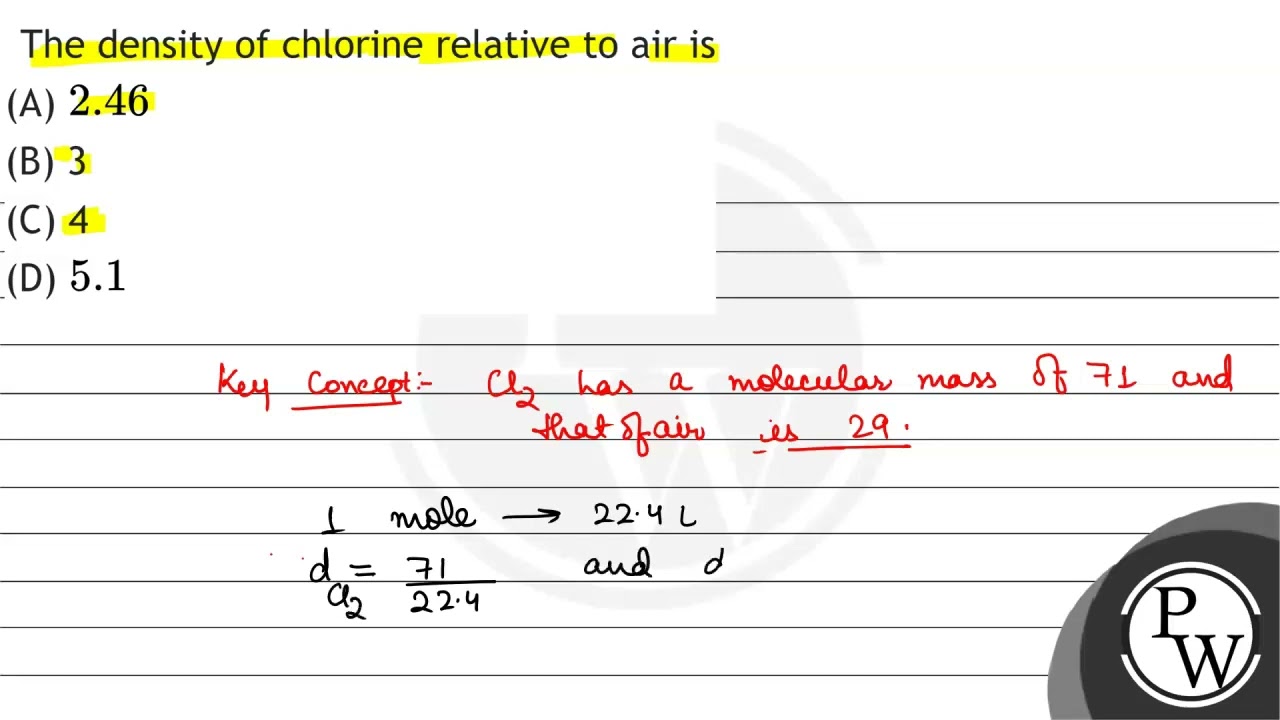 The density of chlorine relative to air is
(A) 2.46
(B) 3
(C) 4
(D) 5.1
Key Concept:- Cl2 has a molecular mass of 71 and
that of air is 29.
1 mole → 22.4 L
d Cl2 = 71/22.4 and d
P
W